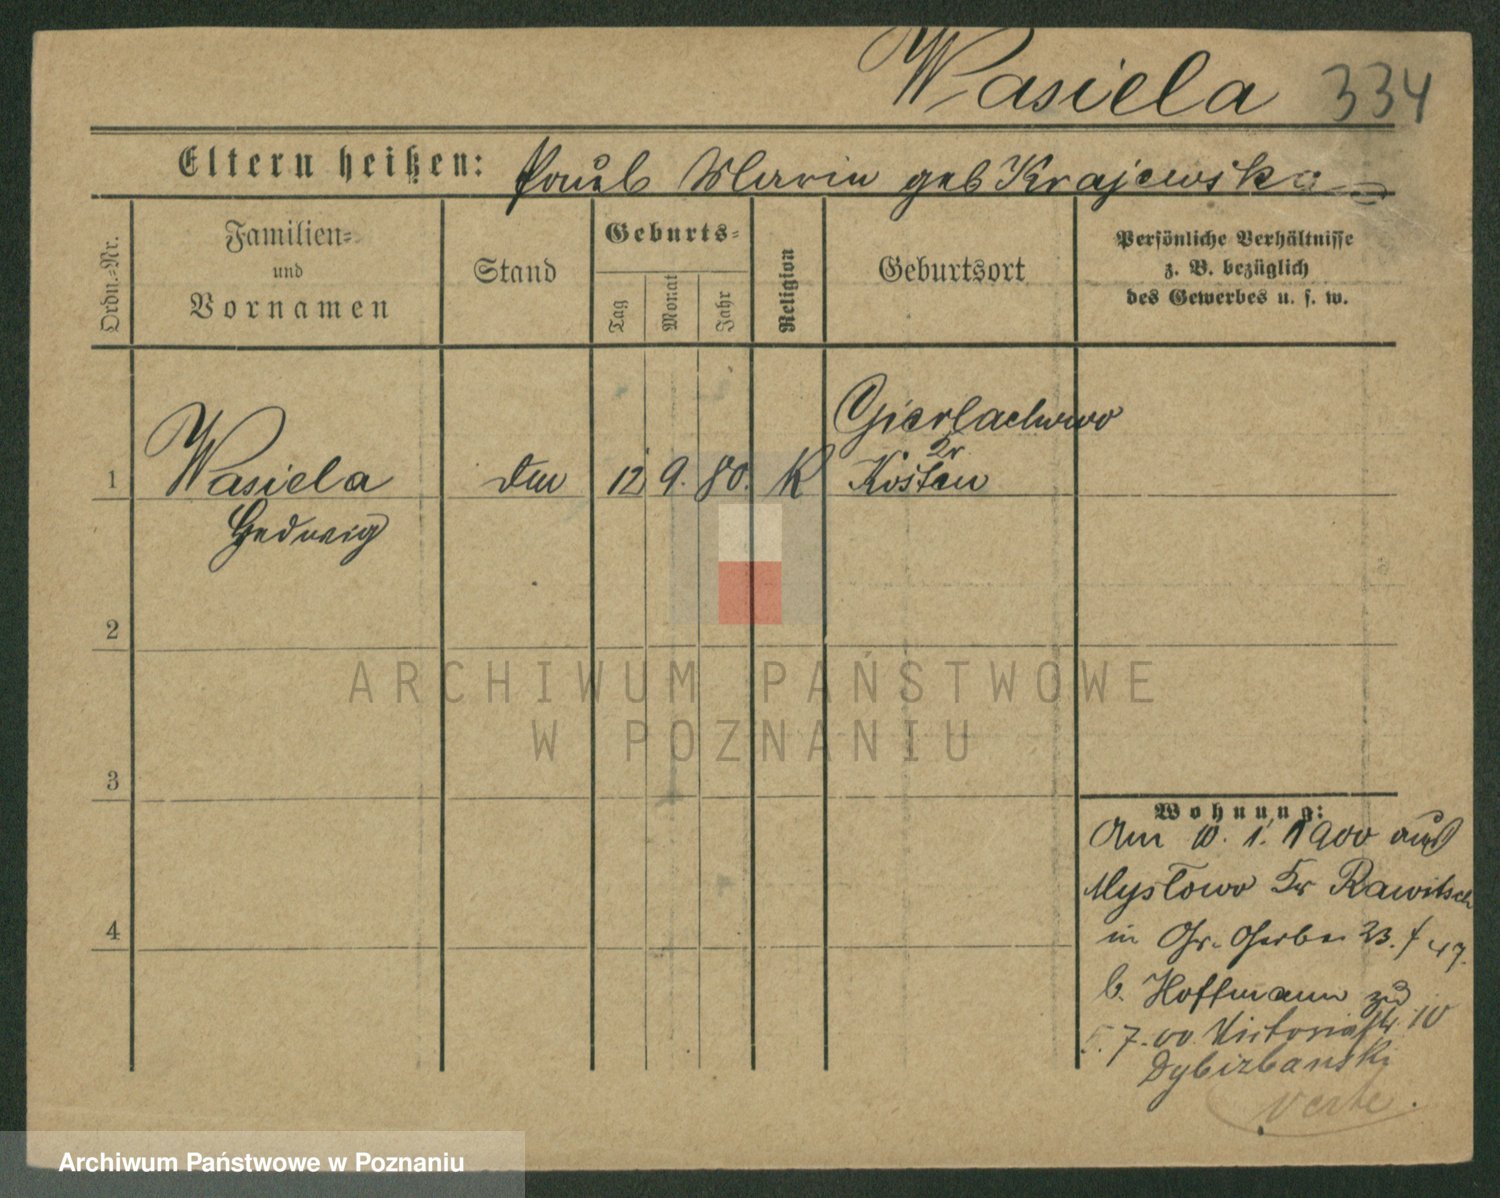 Wasiela 334
Eltern heißen: Paul Maria geb Krajewska
Ordn.-Nr.
Familien-
und
Vornamen
Stand
Geburts-
Tag
Monat
Jahr
Religion
Geburtsort
Persönliche Verhältnisse
z. B. bezüglich
des Gewerbes u. s. w.
Gierlachowo
Kr
1 Wasiela 12 9. 80. K Kosten
Hedwig
2
ARCHIWUM PAŃSTWOWE
W POZNANIU
3
Wohnung:
Am 10. 1. 1900 aus
Mystowo Kr Rawitsch
4
in Gr. Gerber 23. 47.
b. Hoffmann zu
7. 00 Victoriastr. 10
Dybizbanski
verte.
Archiwum Państwowe w Poznaniu